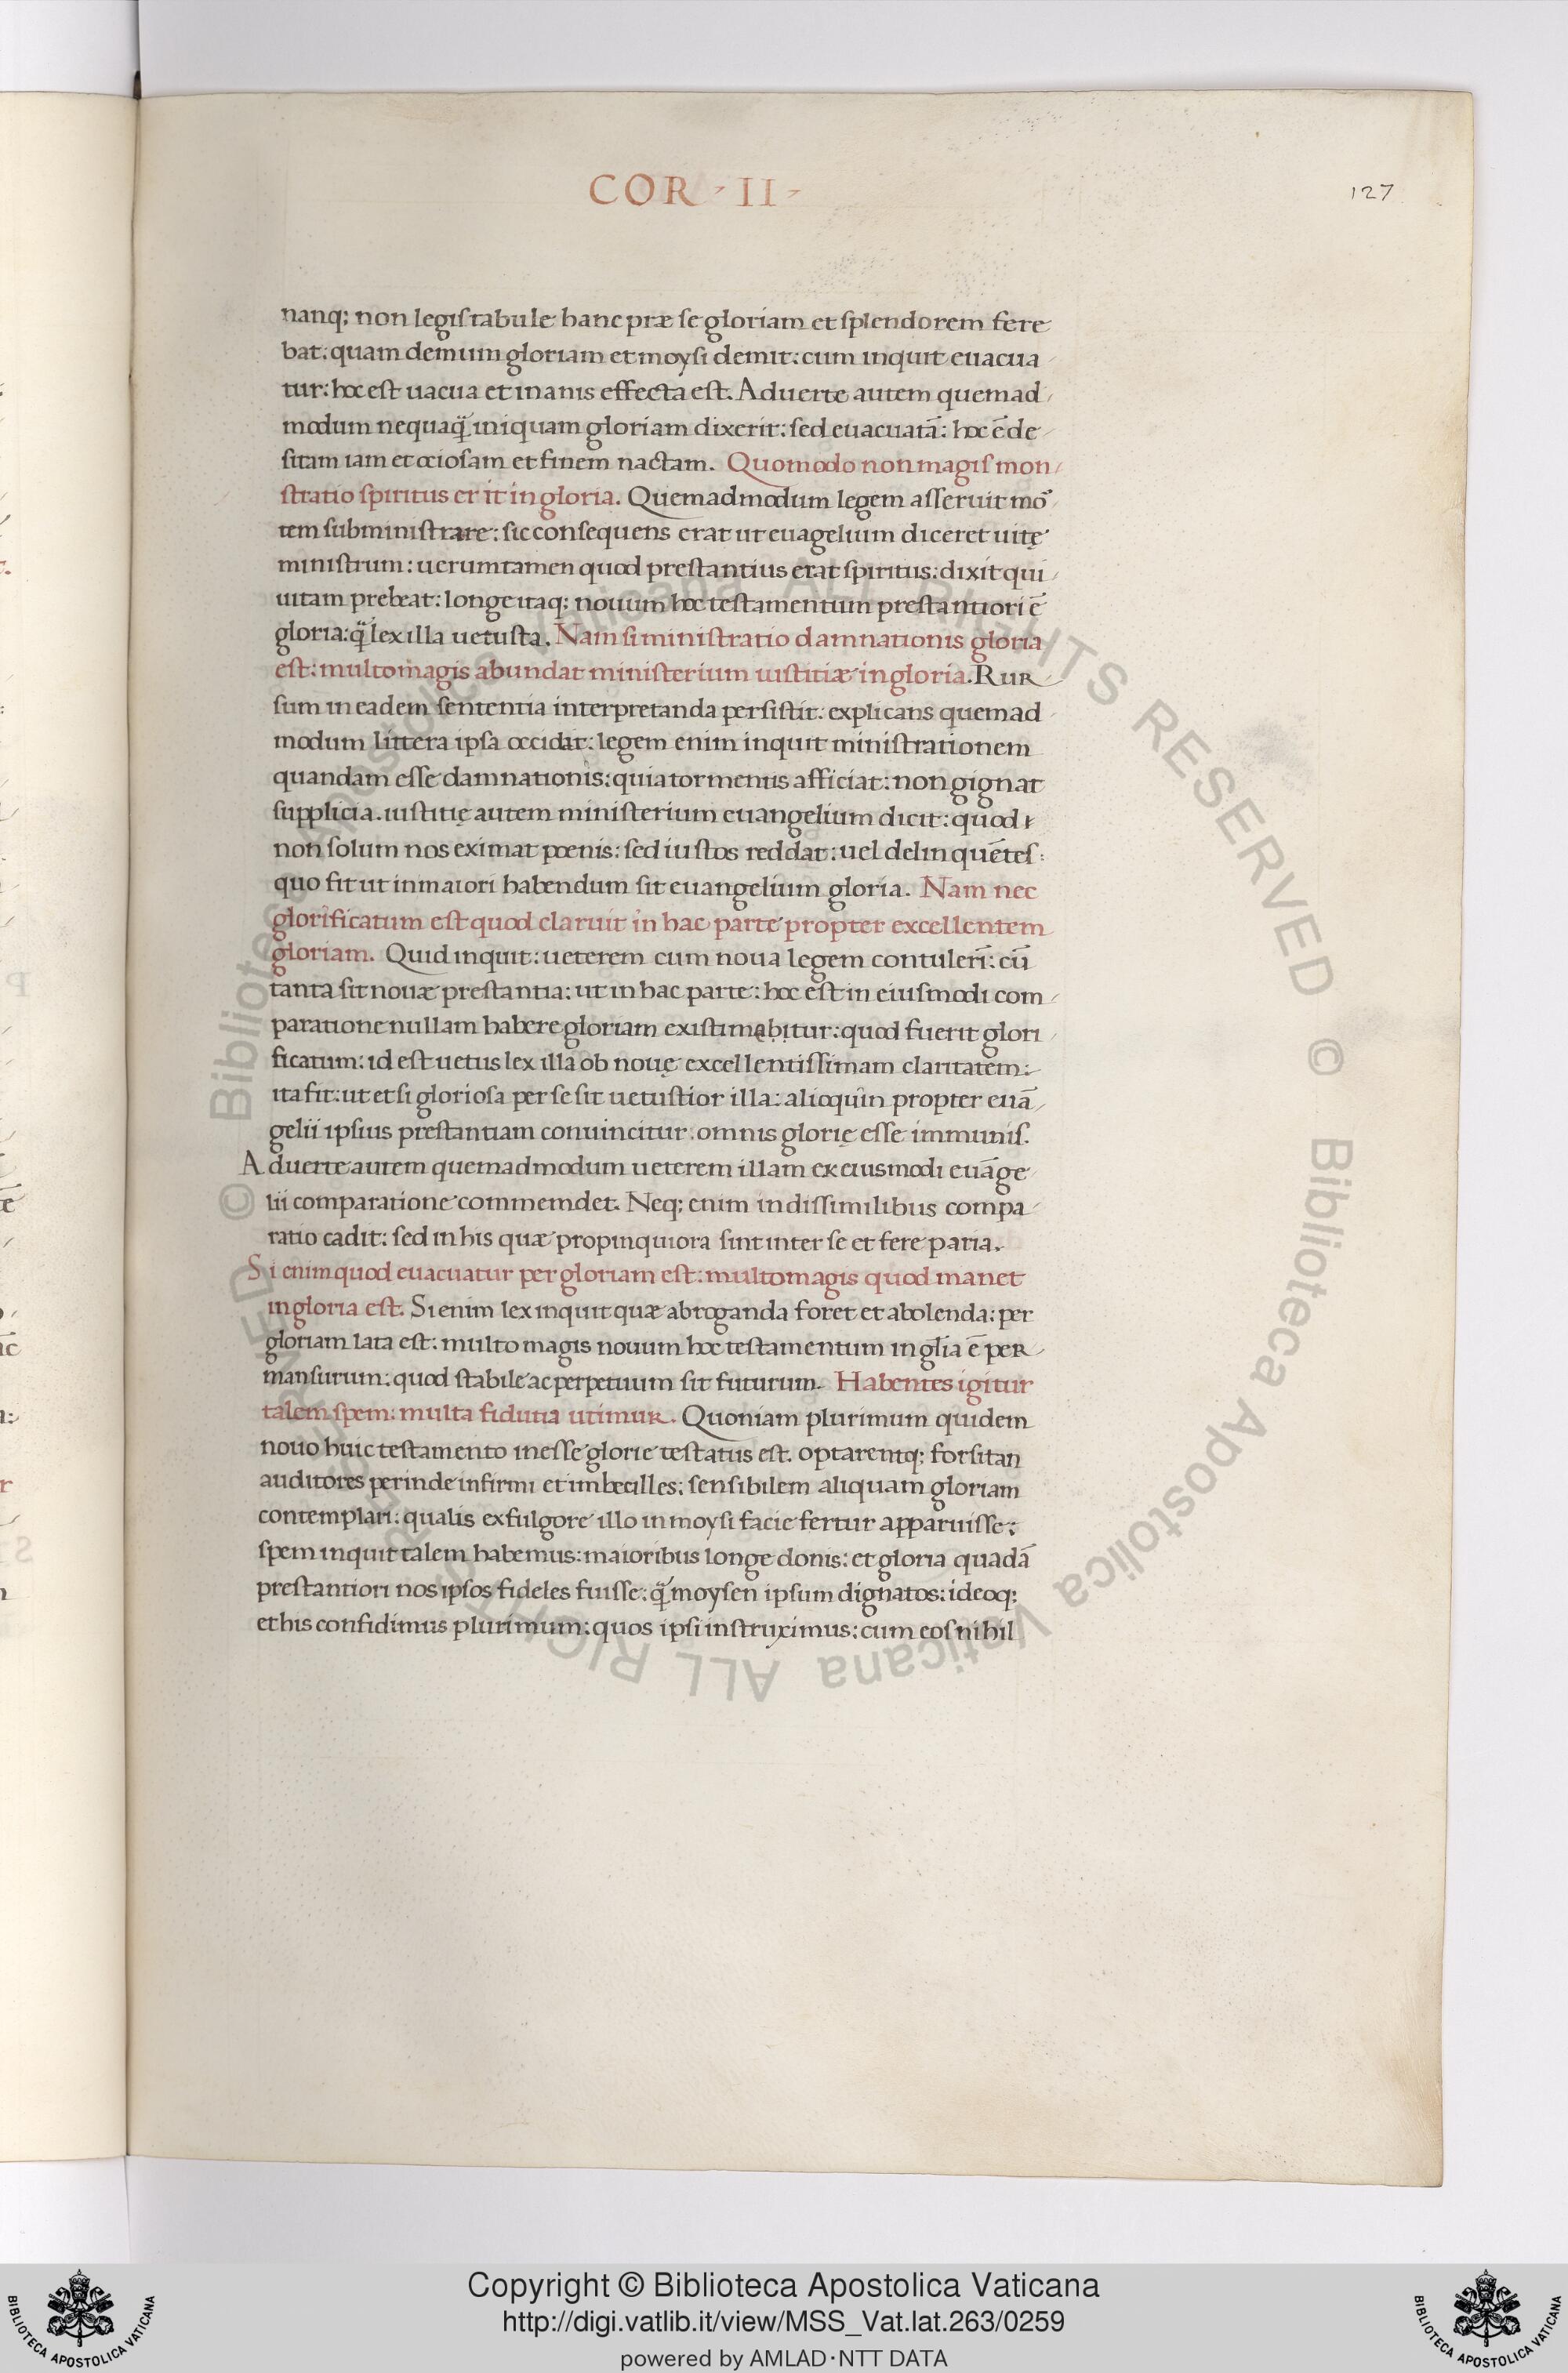 COR · II ·
127
nanq; non legis tabule hanc præ se gloriam et splendorem fere
bat: quam demum gloriam et moysi demit: cum inquit euacua
tur: hoc est uacua et inanis effecta est. Aduerte autem quemad
modum nequaq̃ iniquam gloriam dixerit: sed euacuatā: hoc ē de
sitam iam et ociosam et finem nactam. Quomodo non magis mon
stratio spiritus erit in gloria. Quemadmodum legem asseruit mor̄
tem subministrare: sic consequens erat ut euagelium diceret uitę
ministrum: uerumtamen quod prestantius erat spiritus: dixit qui
uitam prebeat: longe itaq; nouum hoc testamentum prestantiori ē
gloria: q̃ lex illa uetusta. Nam si ministratio damnationis gloria
est: multo magis abundat ministerium iustitiæ in gloria. Rur
sum in eadem sententia interpretanda persistit: explicans quemad
modum littera ipsa occidat: legem enim inquit ministrationem
quandam esse damnationis: quia tormentis afficiat: non gignat
supplicia. iustitię autem ministerium euangelium dicit: quod
non solum nos eximat pœnis: sed iustos reddat: uel delinquētes:
quo fit ut in maiori habendum sit euangelium gloria. Nam nec
glorificatum est quod claruit in hac parte propter excellentem
gloriam. Quid inquit: ueterem cum noua legem contulerī: cū
tanta sit nouæ prestantia: ut in hac parte: hoc est in eiusmodi com
paratione nullam habere gloriam existimębitur: quod fuerit glori
ficatum: id est uetus lex illa ob nouę excellentissimam claritatem:
ita fit: ut etsi gloriosa per se sit uetustior illa: alioquin propter euā
gelii ipsius prestantiam conuincitur: omnis glorię esse immunis.
Aduerte autem quemadmodum ueterem illam ex eiusmodi euāge
lii comparatione commemdet. Neq; enim in dissimilibus compa
ratio cadit: sed in his quæ propinquiora sint inter se et fere paria.
Si enim quod euacuatur per gloriam est: multo magis quod manet
in gloria est. Si enim lex inquit quæ abroganda foret et abolenda: per
gloriam lata est: multo magis nouum hoc testamentum in glīa ē per
mansurum: quod stabile ac perpetuum sit futurum. Habentes igitur
talem spem: multa fidutia utimur. Quoniam plurimum quidem
nouo huic testamento inesse glorie testatus est. optarentq; forsitan
auditores perinde infirmi et imbecilles: sensibilem aliquam gloriam
contemplari: qualis ex fulgore illo in moysi facie fertur apparuisse:
spem inquit talem habemus: maioribus longe donis: et gloria quadā
prestantiori nos ipsos fideles fuisse: q̃ moysen ipsum dignatos: ideoq;
et his confidimus plurimum: quos ipsi instruximus: cum eos nihil
© Biblioteca Apostolica Vaticana ALL RIGHTS RESERVED © Biblioteca Apostolica Vaticana ALL RIGHTS RESERVED
Copyright © Biblioteca Apostolica Vaticana
http://digi.vatlib.it/view/MSS_Vat.lat.263/0259
powered by AMLAD·NTT DATA
BIBLIOTECA APOSTOLICA VATICANA
BIBLIOTECA APOSTOLICA VATICANA